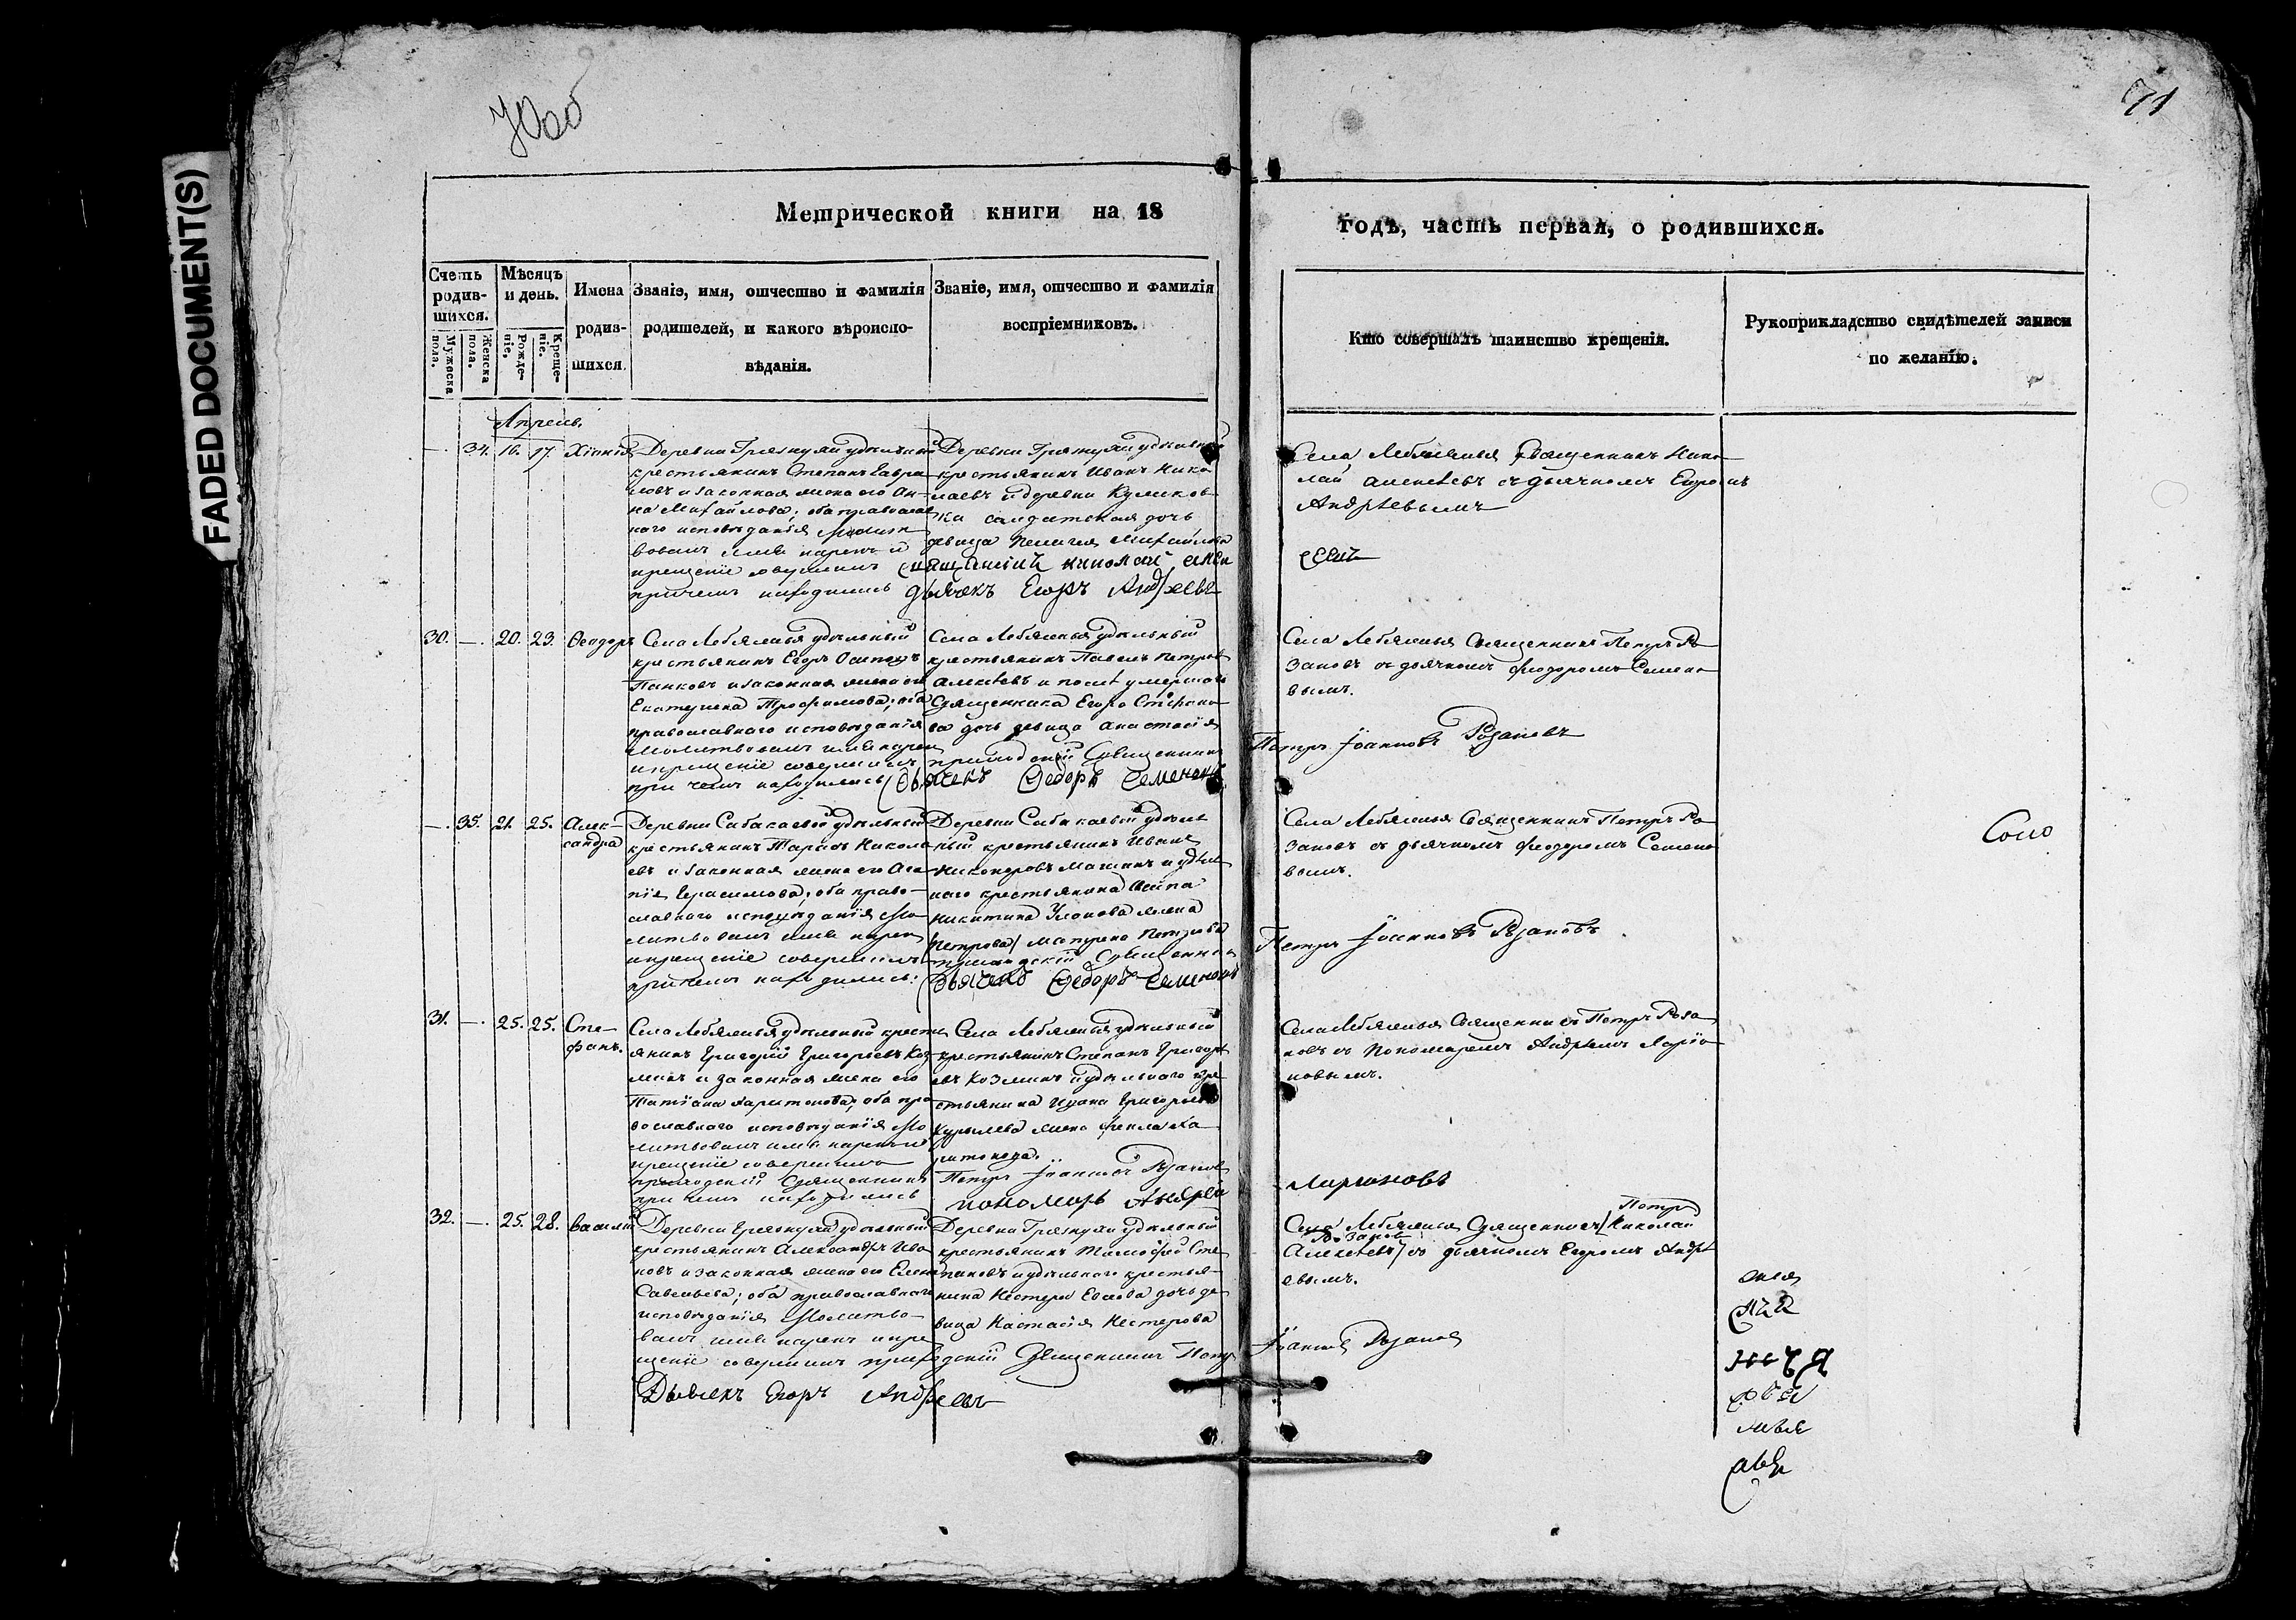 FADED DOCUMENT(S)
70об
71
Метрической книги на 18
годъ, часть первая, о родившихся.
Счетъ родив-
шихся.
Мужеска пола.
Женска пола.
Мѣсяцъ
и день.
Рожде-
ніе.
Креще-
ніе.
Имена
родив-
шихся.
Званіе, имя, отчество и фамилія
родителей, и какого вѣроиспо-
вѣданія.
Званіе, имя, отчество и фамилія
воспріемниковъ.
Кто совершалъ таинство крещенія.
Рукоприкладство свидѣтелей записи
по желанію.
Апрель.
— 34. 16. 17. Хіонія
Деревни Грязнухи удѣльный
крестьянинъ Степанъ Гаври
ловъ и законная жена его Ан-
на Михайлова; оба православ
наго исповѣданія Молит
вовалъ имя нарекъ и
крещеніе совершилъ
причемъ находились
Деревни Грязнухи удѣльный
крестьянинъ Иванъ Нико
лаевъ и деревни Куликов
ки солдатская дочь
девица Пелагея Михайлова
священникъ николай алек
дьячекъ Егоръ Андреевъ
Села Лебяжья Священникъ Нико
лай Алексѣевъ съ дьячкомъ Егоромъ
Андрѣевымъ
сеевъ
30. — 20. 23. Ѳеодоръ
Села Лебяжья удѣльный
крестьянинъ Егоръ Осиповъ
Панковъ и законная жена его
Екатерина Трофимова; оба
православнаго исповѣданія
Молитвовалъ имя нарекъ
и крещеніе совершилъ
при чемъ находились
Села Лебяжья удѣльный
крестьянинъ Павелъ Петровъ
Алексѣевъ и послѣ умершаго
Священника Егора Стефано
ва дочь девица Анастасія
приходскій Священникъ
Дьячекъ Федоръ Семеновъ
Села Лебяжья Священникъ Петръ Ро
зановъ съ дьячкомъ Феодоромъ Семено
вымъ.
Петръ Іоанновъ Розановъ
— 35. 21. 25. Алек-
сандра
Деревни Сабакаевой удѣльный
крестьянинъ Тарасъ Никола
евъ и законная жена его Ага
пія Герасимова; оба право-
славнаго исповѣданія Мо
литвовалъ имя нарекъ
и крещеніе совершилъ
причемъ находились:
Деревни Сабакаевой удѣль
ный крестьянинъ Иванъ
Никоноровъ Машинъ и удѣль
наго крестьянина
Никитина жена
Петрова/ Матрена Петрова
приходскій Священникъ
Дьячекъ Федоръ Семеновъ
Села Лебяжья Священникъ Петръ Ро
зановъ съ дьячкомъ Феодоромъ Семено
вымъ.
Петръ Іоанновъ Розановъ
31. — 25. 25. Сте-
фанъ.
Села Лебяжья удѣльный кресть
янинъ Григорій Григорьевъ Коз
минъ и законная жена его
Татіана Харитонова; оба пра
вославнаго исповѣданія Мо
литвовалъ имя нарекъ и
крещеніе совершилъ
приходскій Священникъ
при чемъ находились
Села Лебяжья удѣльный
крестьянинъ Степанъ Григорь
евъ Козминъ и удѣльнаго кре
стьянина Ивана Григорьева
жена Фекла Ха
ритонова.
Петръ Іоанновъ Розановъ
пономарь Андрей
Села Лебяжья Священникъ Петръ Роза
новъ съ Пономаремъ Андреемъ Ларіо
новымъ.
Ларионовъ
32. — 25. 28. Василій
Деревни Грязнухи удѣльный
крестьянинъ Александръ Ива
новъ и законная жена его Елена
Савельева; оба православнаго
исповѣданія Молитво-
валъ имя нарекъ и кре
щеніе совершилъ приходскій Священникъ Петръ
Дьячекъ Егоръ Андреевъ
Деревни Грязнухи удѣльный
крестьянинъ Тимофей Сте
пановъ и удѣльнаго крестья-
нина Нестера дочь де
вица Настасія Нестерова
Петръ
Села Лебяжья Священникъ / Николай
Розановъ
Алексѣевъ / съ дьячкомъ Егоромъ Андрѣ
евымъ.
Іоанновъ Розановъ